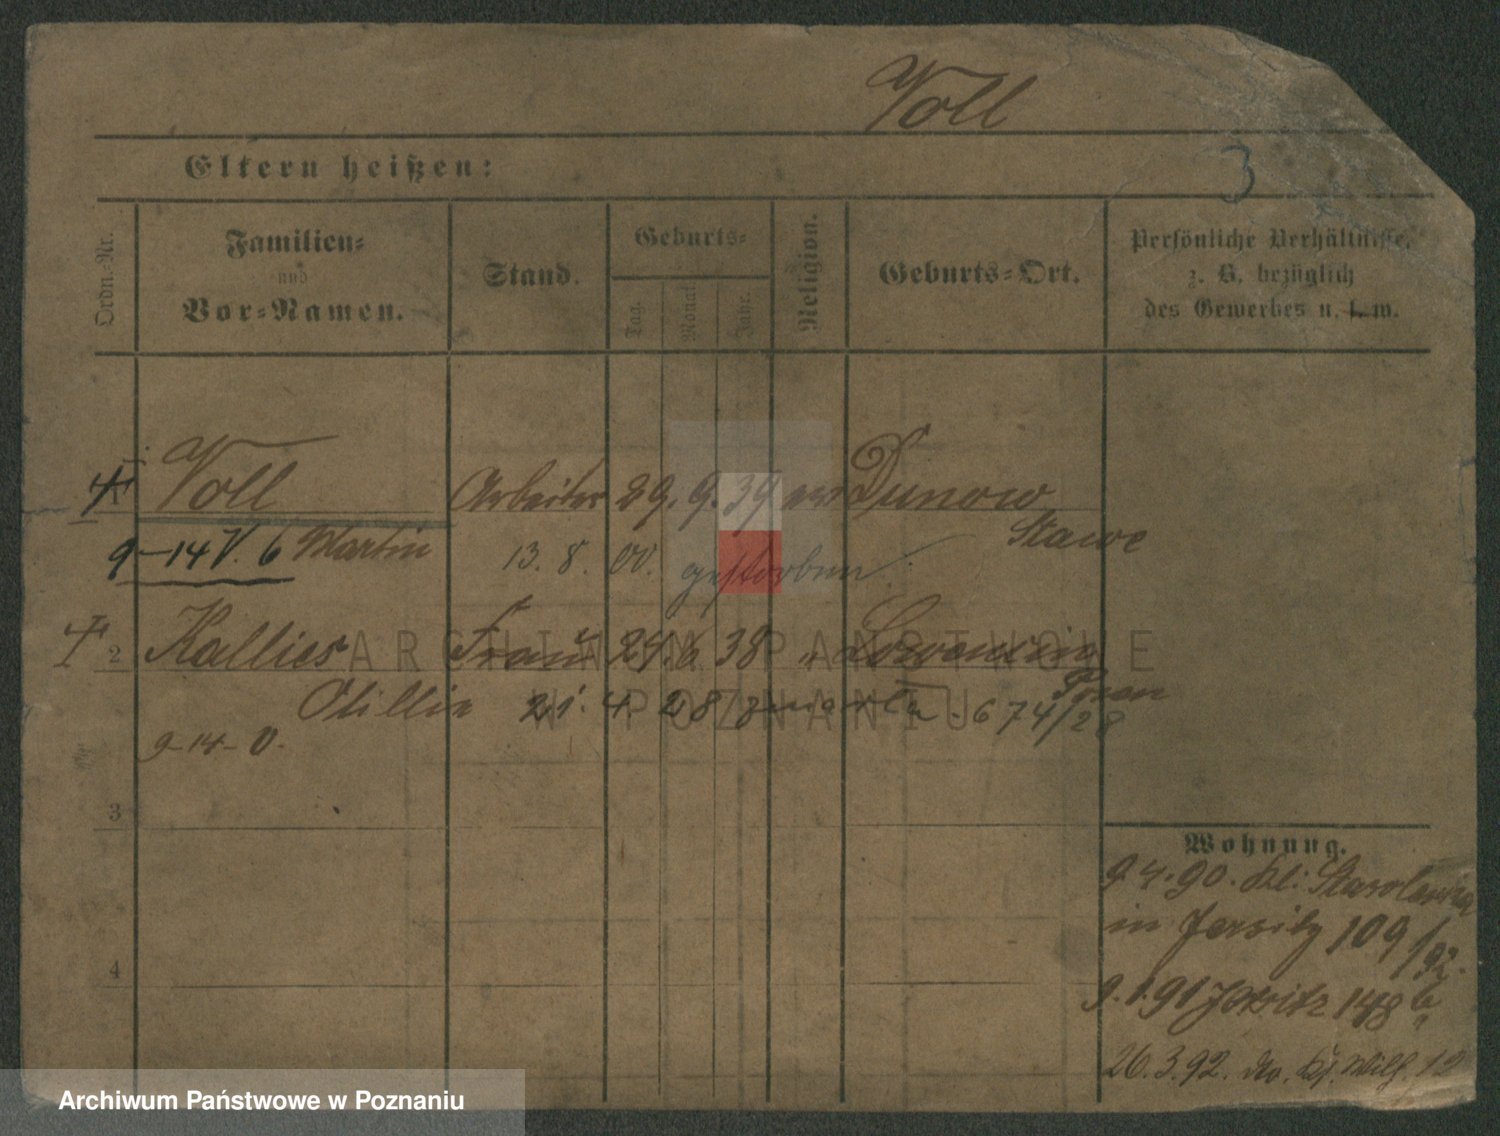 Voll
3
Eltern heißen:
Ordn.-Nr.
Familien-
und
Vor-Namen.
Stand.
Geburts-
Tag.
Monat.
Jahr.
Religion.
Geburts-Ort.
Persönliche Verhältnisse,
z. B. bezüglich
des Gewerbes u. s. w.
Voll Arbeiter 29. 9. 39 ev Dunow
9-14 V. 6 Martin 13. 8. 00. gestorben
2 Kallies Frau 24. 6 38 "
Otillie 21. 4. 28 zmarła. 674/28 Posen
9-14-V.
3
4
Wohnung.
9 4. 90. Starolenka
in Jersitz 109/
9. 1. 91 Jersitz
26. 3. 92. Wilh. 12
ARCHIWUM PAŃSTWOWE
W POZNANIU
Archiwum Państwowe w Poznaniu